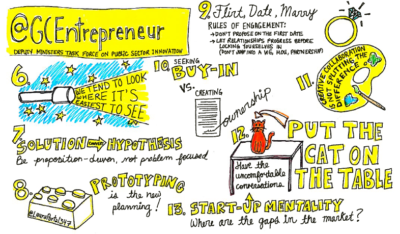 @GCEntrepreneur
DEPUTY MINISTERS TASK FORCE ON PUBLIC SECTOR INNOVATION
6.
WE TEND TO LOOK
WHERE IT'S
EASIEST TO SEE
7. SOLUTION HYPOTHESIS
Be proposition-driven, not problem focused
8. PROTOTYPING
is the new
planning!
9. Flirt, Date, Marry
RULES OF ENGAGEMENT:
→ DON'T PROPOSE ON THE FIRST DATE
→ LET RELATIONSHIPS PROGRESS BEFORE
LOCKING YOURSELVES IN
(DON'T JUMP INTO A PARTNERSHIP)
10. SEEKING
BUY-IN
VS.
CREATING
ownership
11. CREATIVE COLLABORATION
IS NOT SPLITTING THE
DIFFERENCE
12. PUT THE
CAT ON
THE TABLE
Have the
uncomfortable
conversations.
13. START-UP MENTALITY
Where are the gaps in the market?